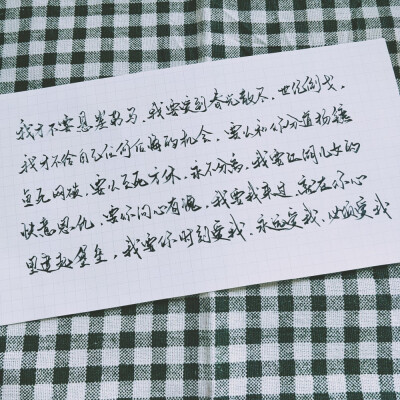 我才不要悬崖勒马,我要爱到春光散尽,世纪倒戈,
我才不给自己任何后悔的机会,要么和你分道扬镳
鱼死网破,要么至死方休,永不分离,我要江湖儿女的
快意恩仇,要你问心有愧,我要我来过,就在你心
里建起堡垒,我要你时刻爱我,永远爱我,必须爱我